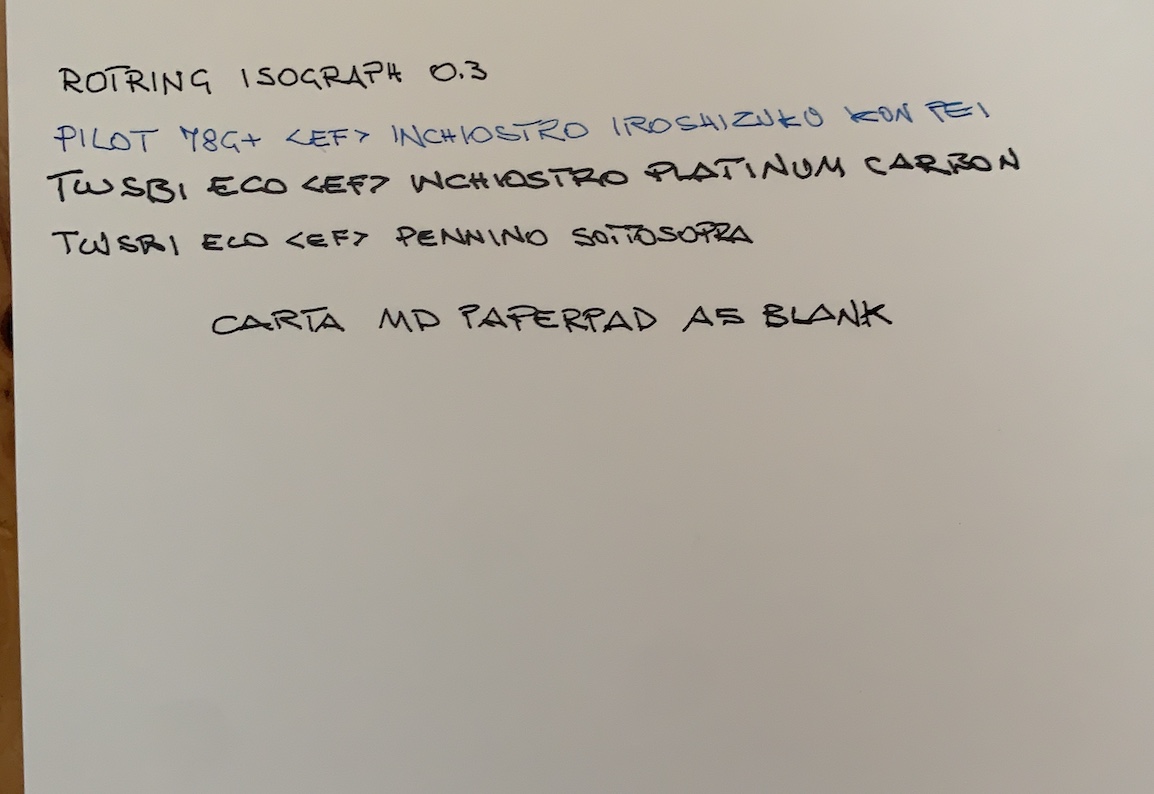 ROTRING ISOGRAPH 0.3
PILOT 78G+ <EF> INCHIOSTRO IROSHIZUKO KON PEI
TWSBI ECO <EF> INCHIOSTRO PLATINUM CARBON
TWSBI ECO <EF> PENNINO SOTTOSOPRA
CARTA MD PAPERPAD A5 BLANK